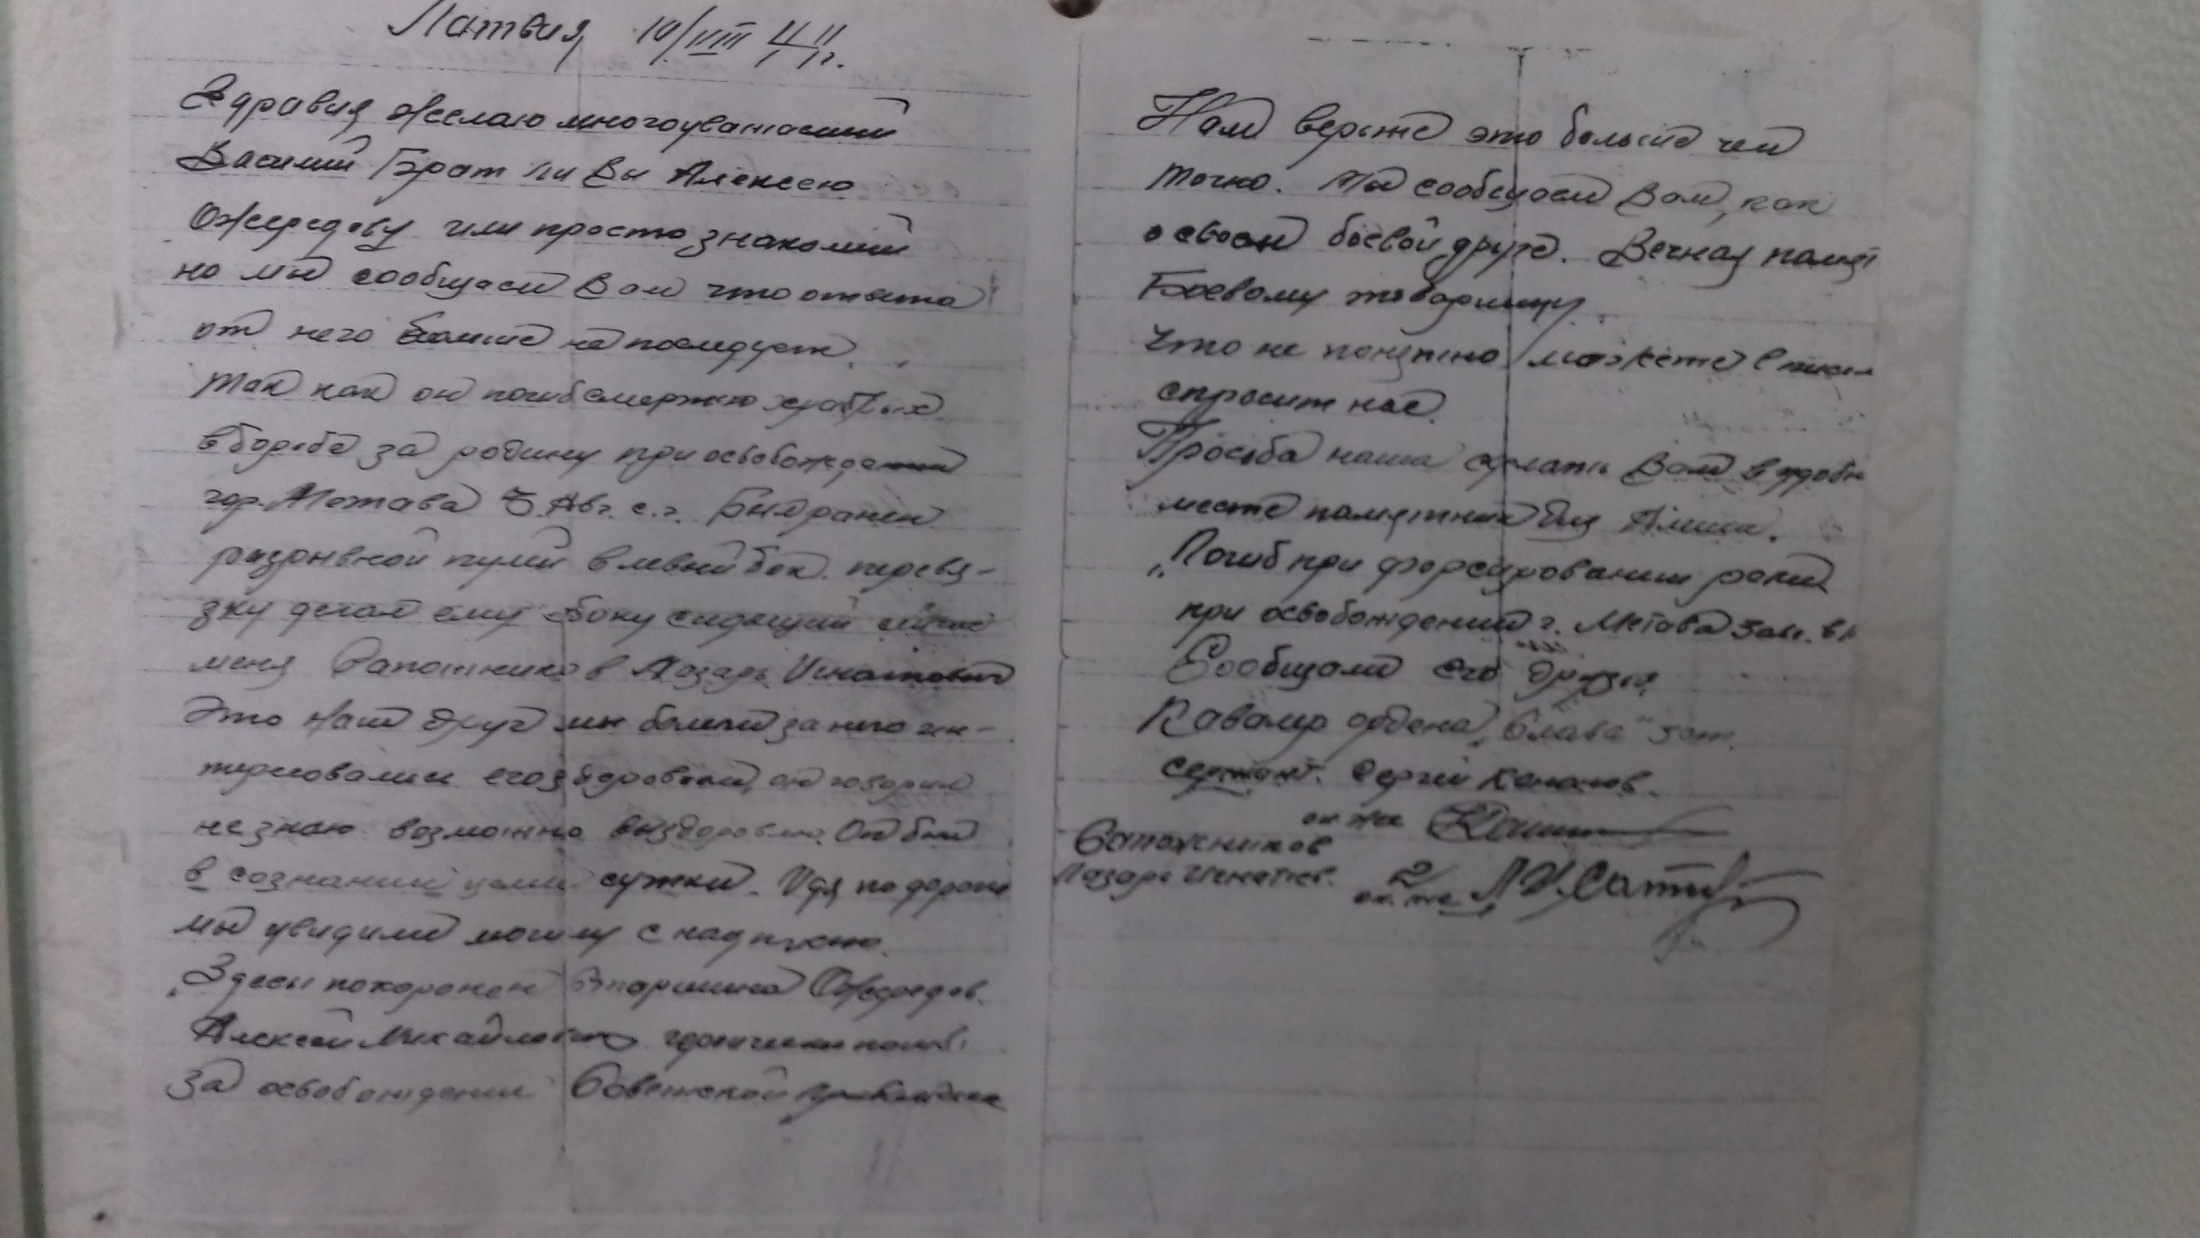 Латвия 10/VIII 44г.
Здравия желаю многоуважаемий
Василий Брат ли Вы Алексею
Ожередову или просто знакомий
но мы сообщаем Вам что ответа
от него больше не последует.
Так как он погиб смертью храбрых
в борьбе за родину при освобождении
гор. Метава 3 Авг. с.г. Был ранен
разрывной пулей в левый бок. перевя-
зку делал ему сбоку сидящий
меня Сапожников Лазарь Игнатович
Это наш друг мы болели за него ин-
тересовались его здоровьем, он говорил
не знаю возможно выздоровлю. Он был
в сознании целий сутки. Идя по дороге
мы увидили могилу с надписью.
„Здесь похоронен Старшина Ожередов.
Алексей Михайлович героически погиб
за освобождении Советской Прибалтики
Нам верьте это больше чем
точно. Мы сообщаем Вам, как
о своем боевой друге. Вечная память
Боевому товарищу.
Что не понятно можете в письм
спросит нас.
Просьба наша сделать Вам в удобн
месте памятник для Алеши.
„Погиб при форсировании реки
при освобождении г. Метава 3 авг.
Сообщали его друзья
Кавалер ордена „Слава" 3 ст.
сержант. Сергей
он же
Сапожников
Лазарь Игнатьев.
он же Л.И. Сап